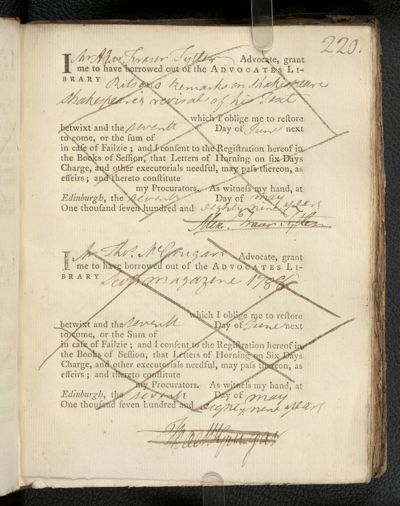 220.
I Mr Alexr Fraser Tytler Advocate, grant
me to have borrowed out of the ADVOCATES LI-
BRARY Ritsons Remarks on Shakespeare
Shakespeares revisal of his Text
which I oblige me to restore
betwixt and the seventh Day of June next
to come, or the sum of
in case of Failzie; and I consent to the Registration hereof in
the Books of Session, that Letters of Horning on six Days
Charge, and other executorials needful, may pass thereon, as
effeirs; and thereto constitute
my Procurators. As witness my hand, at
Edinburgh, the seventh Day of may
One thousand seven hundred and eighty nine years
Alex. Fraser Tytler
I Mr Thos. McGrugar Advocate, grant
me to have borrowed out of the ADVOCATES LI-
BRARY Scots magazene 1788
which I oblige me to restore
betwixt and the seventh Day of June next
to come, or the Sum of
in case of Failzie; and I consent to the Registration hereof in
the Books of Session, that Letters of Horning on Six Days
Charge, and other executorials needful, may pass thereon, as
effeirs; and thereto constitute
my Procurators. As witness my hand, at
Edinburgh, the seventh Day of may
One thousand seven hundred and eighty nine years
Thos McGrugar